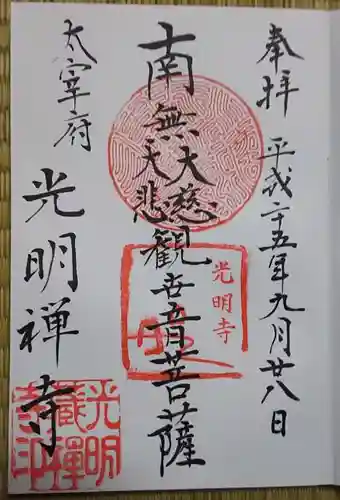 奉拝 平成二十五年九月廿八日
南無大慈大悲観世音菩薩
太宰府 光明禅寺
光明寺
光明
蔵禅
寺斗